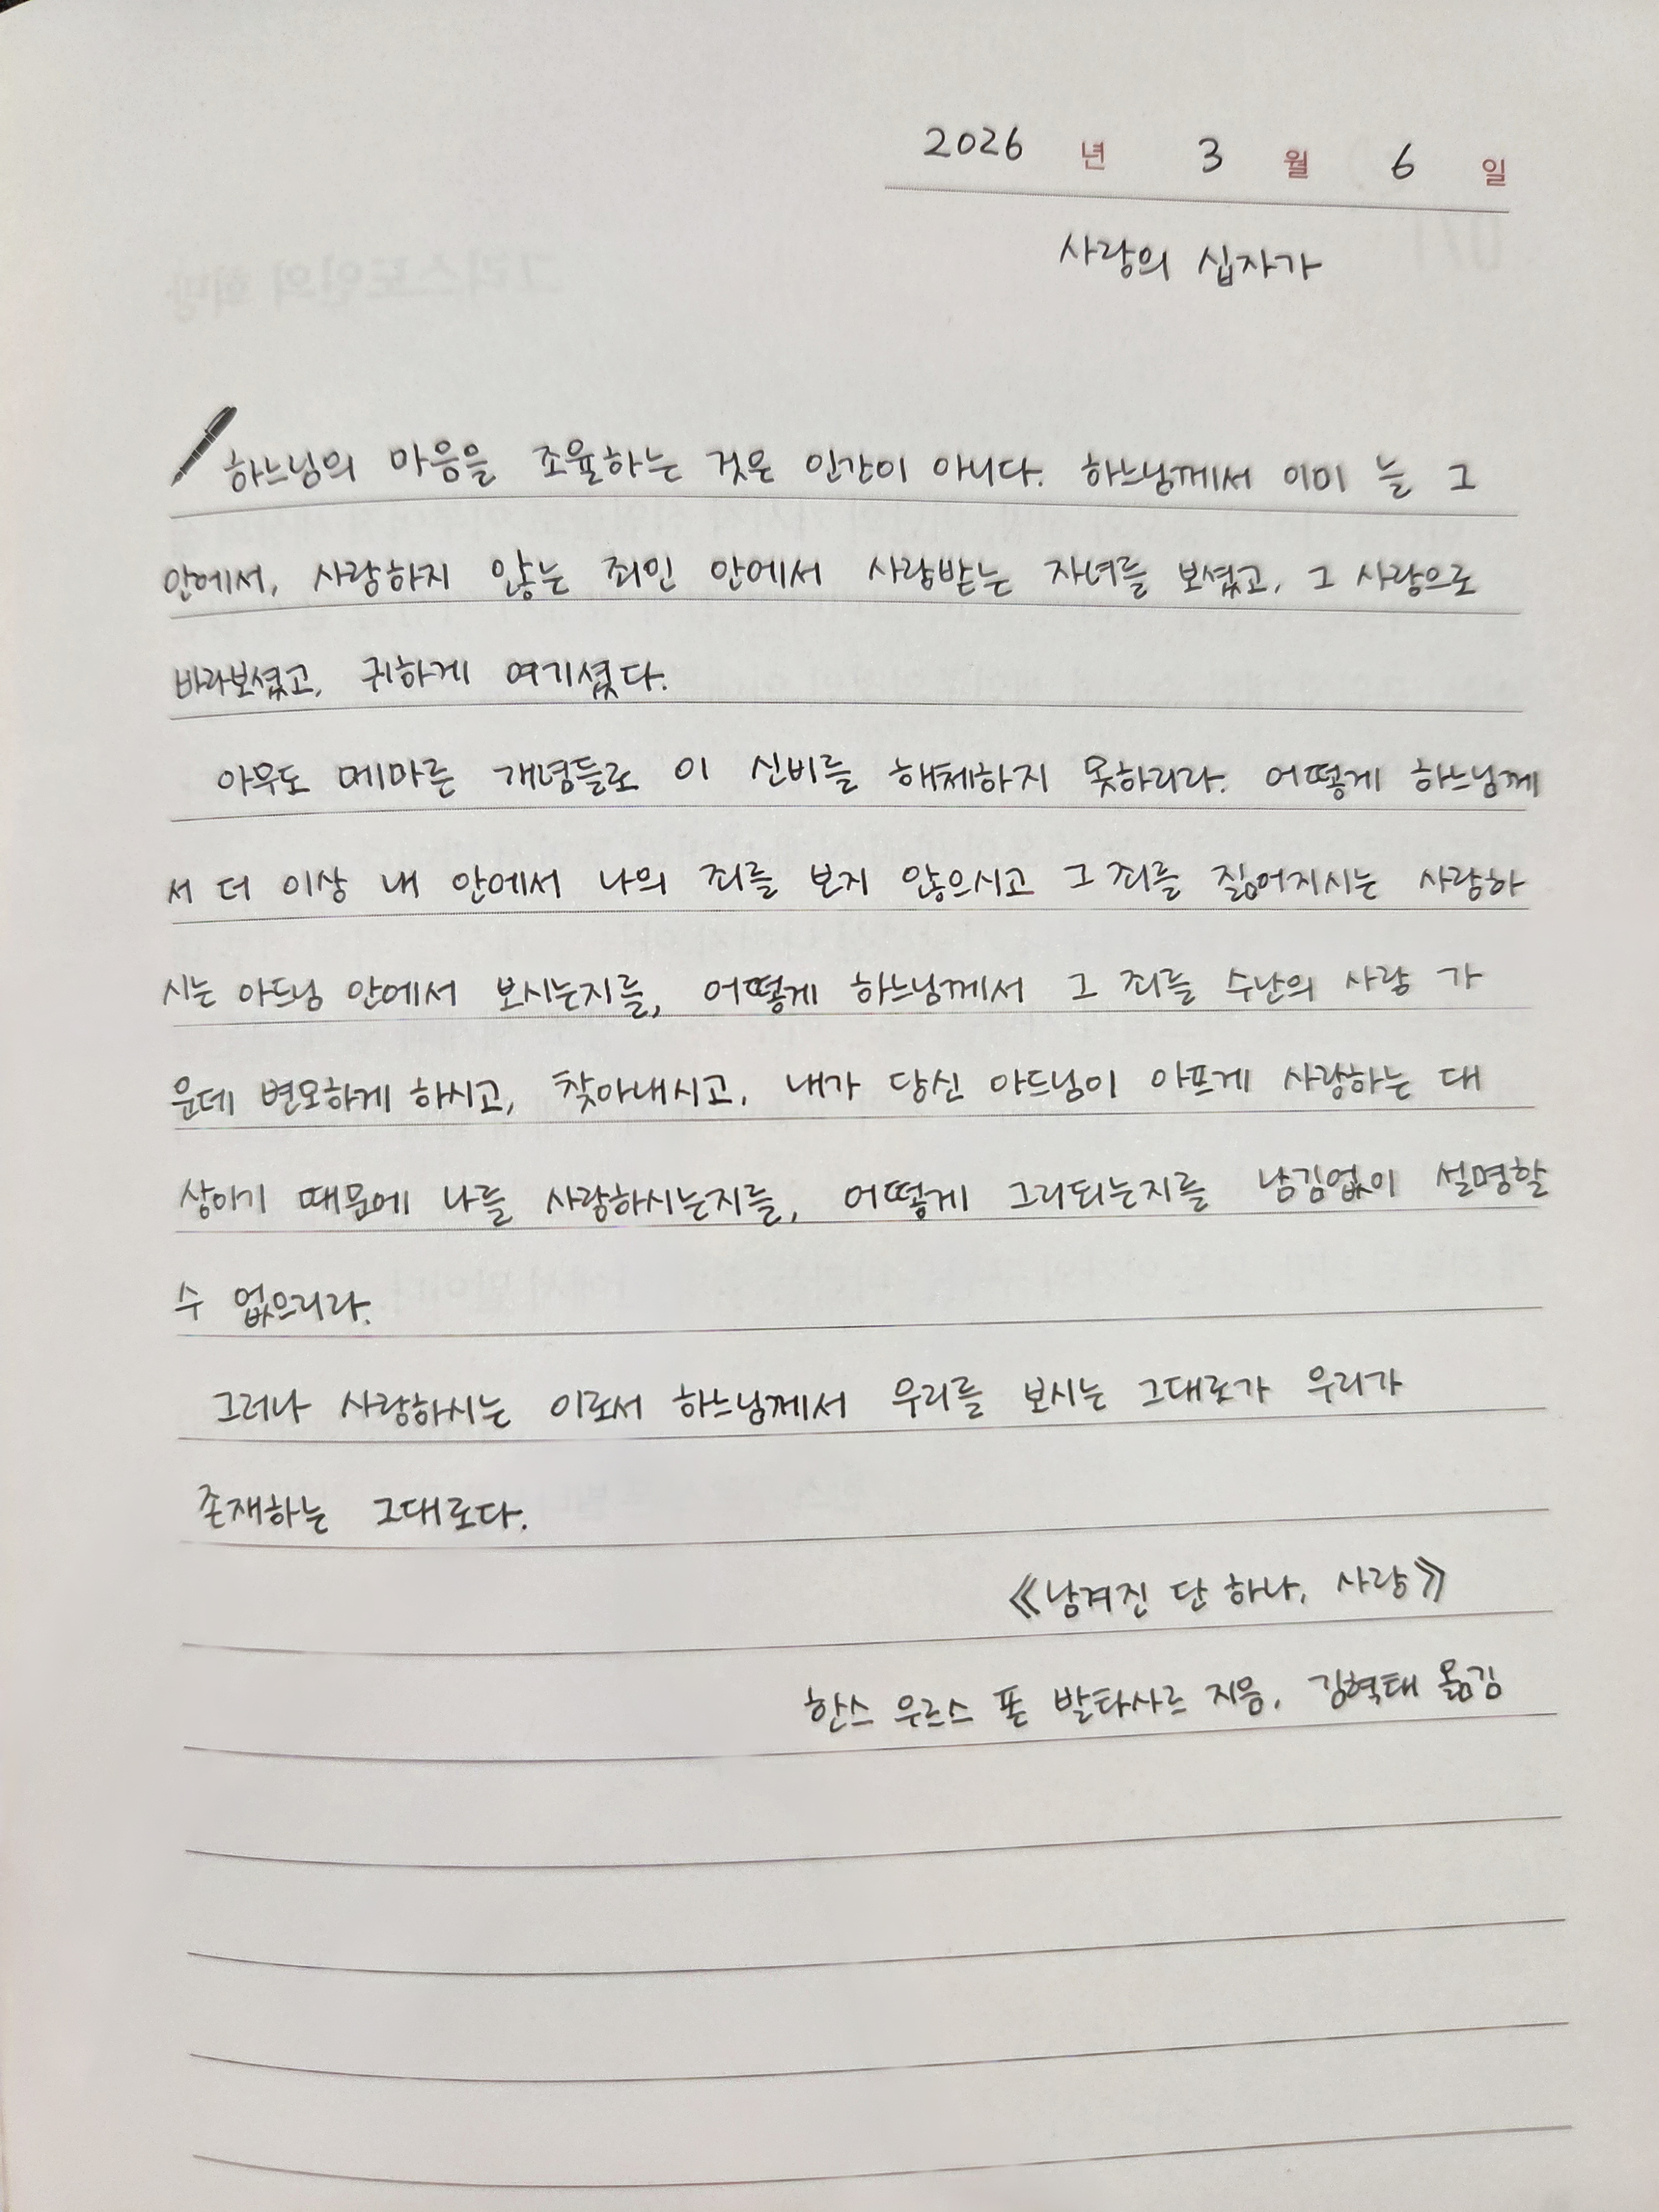 2026 년 3 월 6 일
사랑의 십자가
하느님의 마음을 조율하는 것은 인간이 아니다. 하느님께서 이미 늘 그
안에서, 사랑하지 않는 죄인 안에서 사랑받는 자녀를 보셨고, 그 사랑으로
바라보셨고, 귀하게 여기셨다.
아무도 메마른 개념들로 이 신비를 해체하지 못하리라. 어떻게 하느님께
서 더 이상 내 안에서 나의 죄를 보지 않으시고 그 죄를 짊어지시는 사랑하
시는 아드님 안에서 보시는지를, 어떻게 하느님께서 그 죄를 수난의 사랑 가
운데 변모하게 하시고, 찾아내시고, 내가 당신 아드님이 아프게 사랑하는 대
상이기 때문에 나를 사랑하시는지를, 어떻게 그리되는지를 남김없이 설명할
수 없으리라.
그러나 사랑하시는 이로서 하느님께서 우리를 보시는 그대로가 우리가
존재하는 그대로다.
《남겨진 단 하나, 사랑》
한스 우르스 폰 발타사르 지음, 김혁태 옮김